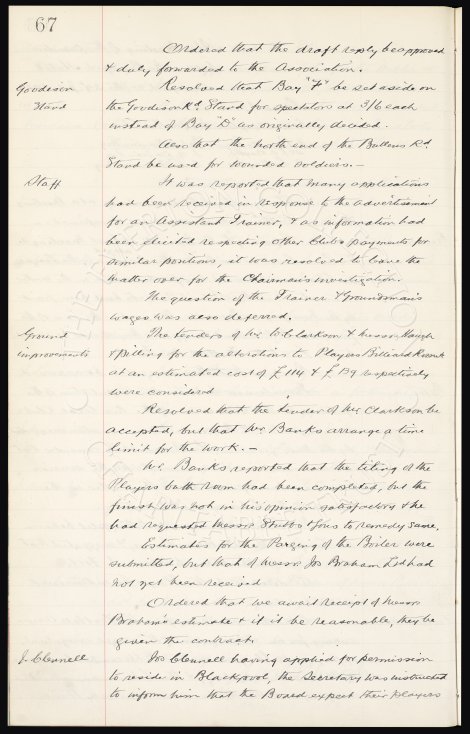 67
Ordered that the draft reply be approved
& duly forwarded to the Association.
Goodison Stand
Resolved that Bay "F" be set aside on
the Goodison Rd. Stand for spectators at 3/6 each
instead of Bay "D" as originally decided.
Also that the north end of the Bullens Rd.
Stand be used for wounded soldiers. —
Staff
It was reported that many applications
had been received in response to the advertisement
for an Assistant Trainer, & as information had
been elicited respecting other Clubs payments for
similar positions, it was resolved to leave the
matter over for the Chairman's investigation.
The question of the Trainer & Groundsman's
wages was also deferred.
Ground improvements
The tenders of Mr W. Clarkson & Messrs Waugh
& Pilling for the alterations to Players Billiard Room
at an estimated cost of £114 & £139 respectively
were considered
Resolved that the tender of Mr Clarkson be
accepted, but that Mr Banks arrange a time
limit for the work. —
Mr Banks reported that the tiling of the
Players bath room had been completed, but the
finish was not in his opinion satisfactory & he
had requested Messrs Stubbs & Sons to remedy same.
Estimates for the Parging of the Boiler were
submitted, but that of Messrs Jos Braham Ltd had
not yet been received
Ordered that we await receipt of Messrs
Braham's estimate & if it be reasonable, they be
given the contract.
J. Clennell
Jos Clennell having applied for permission
to reside in Blackpool, the Secretary was instructed
to inform him that the Board expect their players